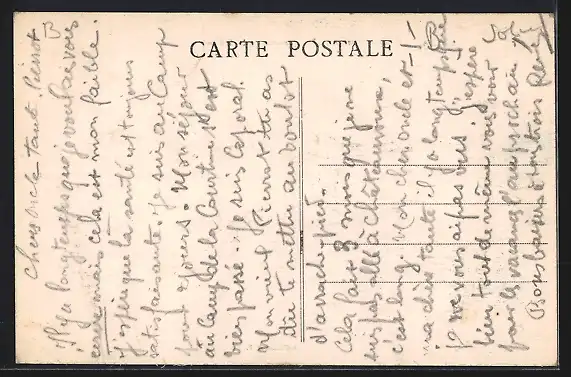 CARTE POSTALE
Chers oncle tante Pierrot
Il y a longtemps que je voulais vous
écrire mais cela est mon faible.
J'espère que la santé est toujours
satisfaisante. Je suis au Camp
pour jours. Mon séjour
au Camp de la Courtine s'est
bien passé. Je suis Caporal.
Mon vieux Pierrot tu as
dû te mettre au boulot
d'arrache pied.
Cela fait 3 mois que je ne
suis pas allé à Châteauroux,
c'est long. Mon cher oncle et
ma chère tante il y a longtemps que
je ne vous ai pas vus. J'espère
bien tout de même vous voir
pour les vacances l'an prochain
Bons baisers à tous trois René